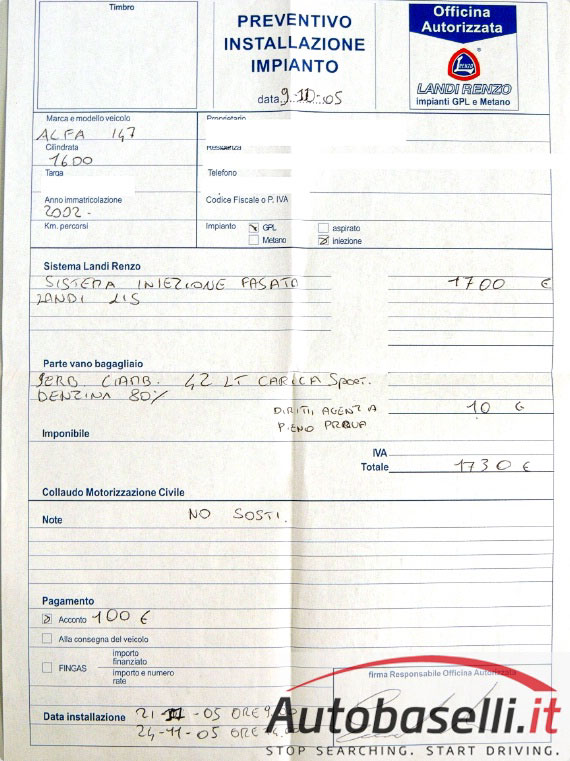 Timbro
PREVENTIVO
INSTALLAZIONE
IMPIANTO
data 9-11-05
Officina
Autorizzata
LANDI RENZO
impianti GPL e Metano
Marca e modello veicolo
ALFA 147
Cilindrata
1600
Targa
Anno immatricolazione
2002-
Km. percorsi
Proprietario
Residenza
Telefono
Codice Fiscale o P. IVA
Impianto GPL aspirato
Metano iniezione
Sistema Landi Renzo
SISTEMA INIEZIONE FASATO 1700 €
LANDI LIS
Parte vano bagagliaio
SERB. CIAMB. 42 LT CARICA SPORT.
DENZINA 80%
DIRITTI AGENZIA 10 €
PIENO PROVA
Imponibile
IVA
Totale 1730 €
Collaudo Motorizzazione Civile
Note NO SOSTI.
Pagamento
Acconto 100 €
Alla consegna del veicolo
FINGAS
importo
finanziato
importo e numero
rate
firma Responsabile Officina Autorizzata
Data installazione 21-11-05 ORE
24-11-05 ORE
Autobaselli.it
STOP SEARCHING. START DRIVING.